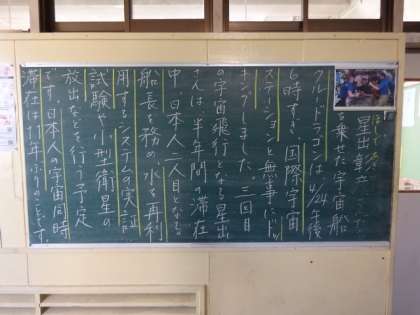 ほしで あきひこ
星出彰彦さん
を乗せた宇宙船
クルードラゴンは4/24午後
6時すぎ、国際宇宙
ステーションと無事にドッ
キングしました。三回目
の宇宙飛行となる星出
さんは、半年間の滞在
中、日本人二人目となる
船長を務め、水を再利
用するシステムの実証
試験や小型衛星の
放出などを行う予定
です。日本人の宇宙同時
滞在は11年ぶりのことです。